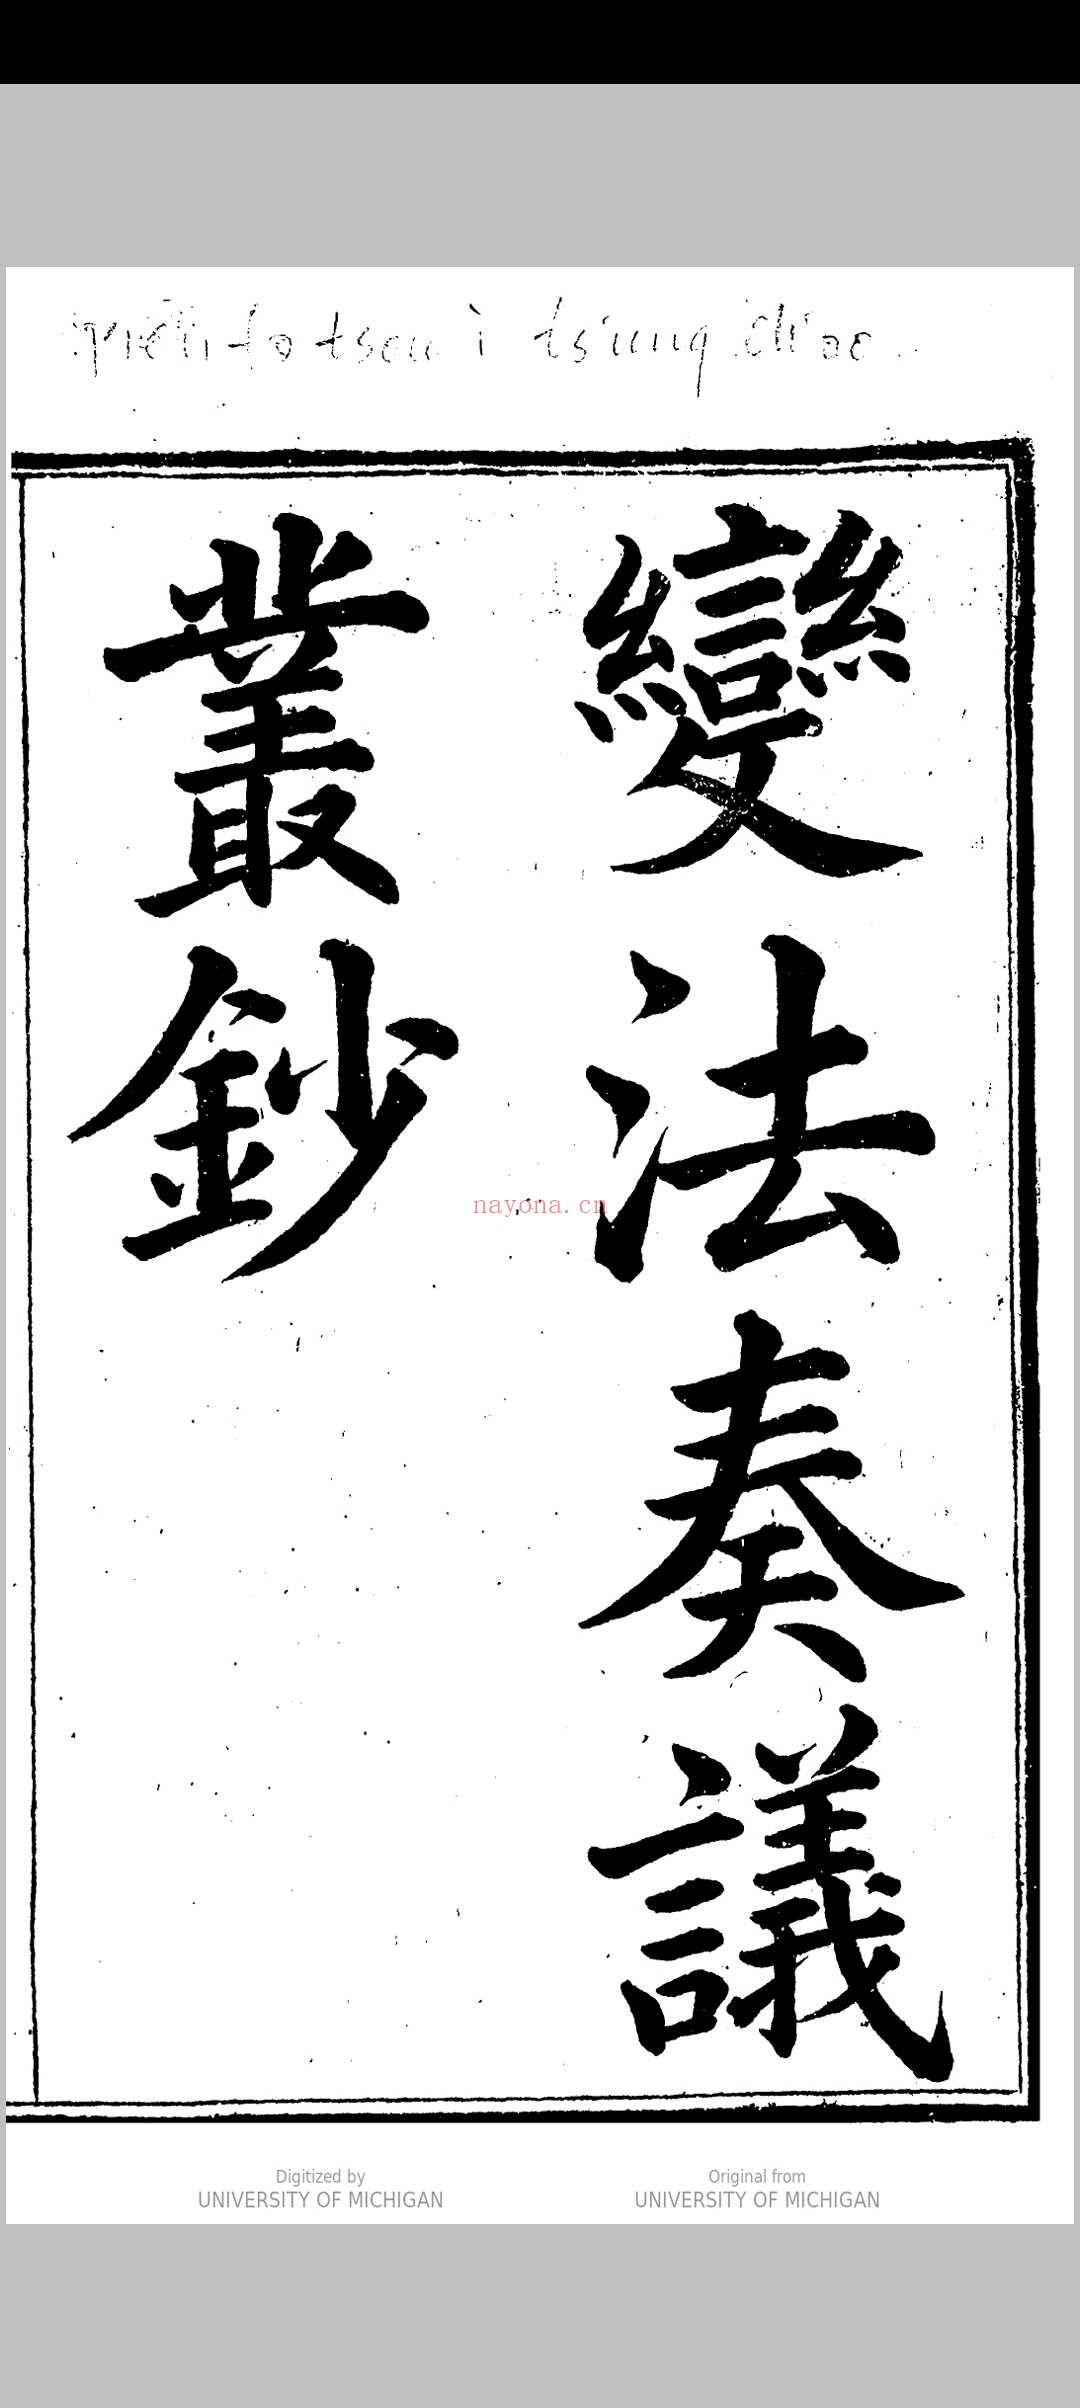 pien fa tsou i tsung ch'ao
變法奏議
叢鈔
nayona.cn
Digitized by
UNIVERSITY OF MICHIGAN
Original from
UNIVERSITY OF MICHIGAN